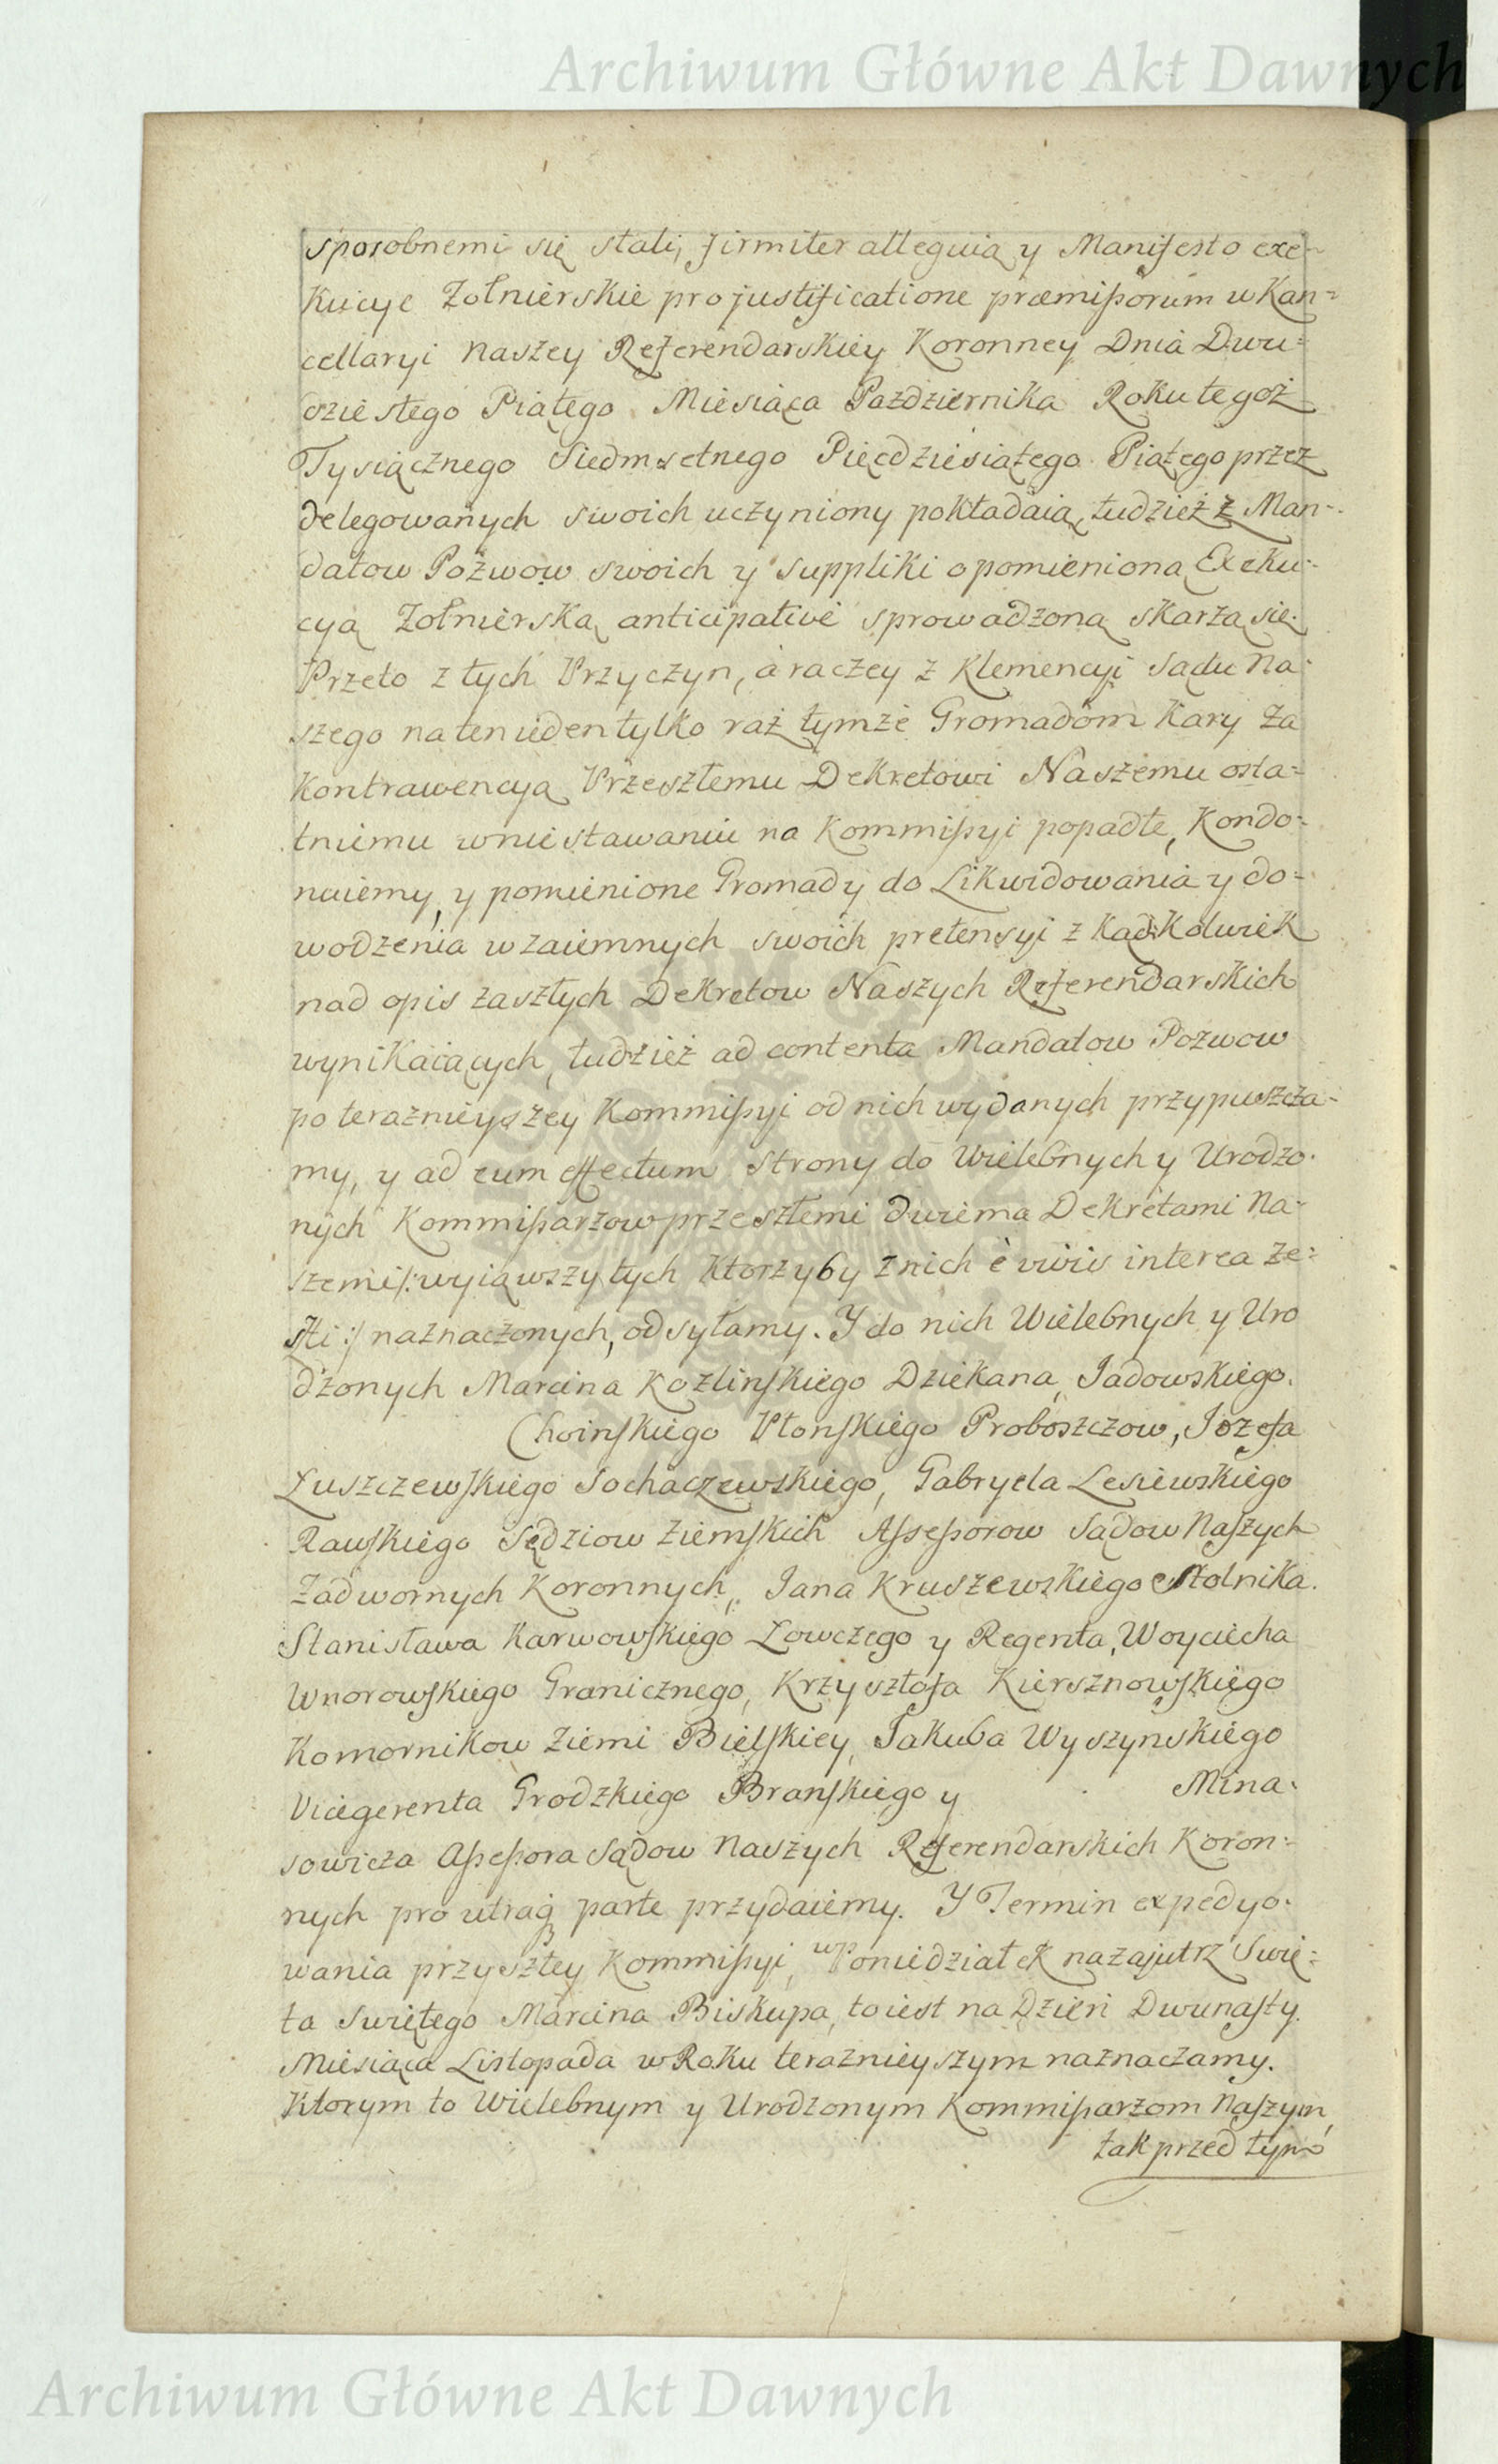 Archiwum Główne Akt Dawnych
sposobnemi się stali, firmiter alleguią y Manifesto exe-
kucye Zołnierskie pro justificatione præmißorum w Kan=
cellaryi naszey Referendarskiey Koronney Dnia Dwu=
dziestego Piątego Miesiąca Pazdziernika Roku tegoż
Tysiącznego Siedmsetnego Pięcdziesiątego Piątego przez
delegowanych swoich uczyniony pokładaią, tudzież z Man-
datow Pozwow swoich y suppliki o pomienioną Exeku-
cyą Zołnierską anticipative sprowadzoną skarżą się.
Przeto z tych Przyczyn, a raczey z Klemencyi Sądu Na-
szego na ten ieden tylko raz tymże Gromadom Kary za
Kontrawencyą Przeszłemu Dekretowi Naszemu osta=
tniemu w niestawaniu na Kommißyi popadłe, Kondo-
nuiemy, y pomienione Gromady do Likwidowania y do=
wodzenia wzaiemnych swoich pretensyi z kądkolwiek
nad opis zaszłych Dekretow Naszych Referendarskich
wynikaiących, tudzież ad contenta Mandatow Pozwow
po teraznieyszey Kommißyi od nich wydanych przypuszcza-
my, y ad eum effectum Strony do Wielebnych y Urodzo-
nych Kommißarzow przeszłemi dwiema Dekretami Na-
szemi /: wyiąwszy tych ktorzyby z nich è vivis interea ze=
szli :/ naznaczonych, odsyłamy. Y do nich Wielebnych y Uro
dzonych Marcina Kozlinskiego Dziekana, Jadowskiego.
Choinskiego Płonskiego Proboszczow, Jozefa
Łuszczewskiego Sochaczewskiego, Gabryela Lesiewskiego
Rawskiego Sędziow Ziemskich Aßeßorow Sądow Naszych
Zadwornych Koronnych, Jana Kruszewskiego Stolnika.
Stanisława Karwowskiego Łowczego y Regenta, Woyciecha
Wnorowskiego Granicznego, Krzysztofa Kiersznowskiego
Komornikow Ziemi Bielskiey, Jakuba Wyszynskiego
Vicegerenta Grodzkiego Branskiego y Mina-
sowicza Aßeßora Sądow Naszych Referendarskich Koron=
nych pro utraq parte przydaiemy. Y Termin expedyo-
wania przyszłey Kommißyi, w Poniedziałek nazajutrz Swię=
ta Swiętego Marcina Biskupa, to iest na Dzień Dwunasty
Miesiąca Listopada w Roku terazniéyszym naznaczamy.
Ktorym to Wielebnym y Urodzonym Kommißarzom Naszym,
tak przed tym
Archiwum Główne Akt Dawnych